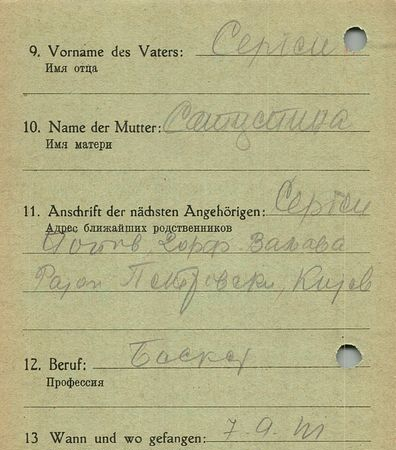 9. Vorname des Vaters: Сергей
Имя отца
10. Name der Mutter:
Имя матери
11. Anschrift der nächsten Angehörigen: Сергей
Адрес ближайших родственников
Дорф
Район Петровски, Кијев
12. Beruf:
Профессия
13 Wann und wo gefangen: 7.9.41